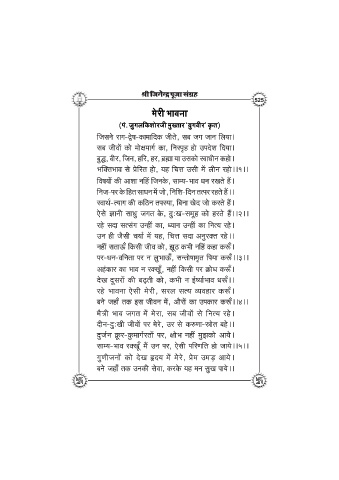 श्री जिनेन्द्र पूजा संग्रह
525
मेरी भावना
(पं. जुगलकिशोरजी मुख्तार 'युगवीर' कृत)
जिसने राग-द्वेष-कामादिक जीते, सब जग जान लिया।
सब जीवों को मोक्षमार्ग का, निस्पृह हो उपदेश दिया।
बुद्ध, वीर, जिन, हरि, हर, ब्रह्मा या उसको स्वाधीन कहो।
भक्तिभाव से प्रेरित हो, यह चित्त उसी में लीन रहो।।१।।
विषयों की आशा नहिं जिनके, साम्य-भाव धन रखते हैं।
निज-पर के हित साधन में जो, निशि-दिन तत्पर रहते हैं।।
स्वार्थ-त्याग की कठिन तपस्या, बिना खेद जो करते हैं।
ऐसे ज्ञानी साधु जगत के, दु:ख-समूह को हरते हैं।।२।।
रहे सदा सत्संग उन्हीं का, ध्यान उन्हीं का नित्य रहे।
उन ही जैसी चर्या में यह, चित्त सदा अनुरक्त रहे।।
नहीं सताऊँ किसी जीव को, झूठ कभी नहिं कहा करूँ।
पर-धन-वनिता पर न लुभाऊँ, सन्तोषामृत पिया करूँ।।३।।
अहंकार का भाव न रक्खूँ, नहीं किसी पर क्रोध करूँ।
देख दूसरों की बढ़ती को, कभी न ईर्ष्याभाव धरूँ।।
रहे भावना ऐसी मेरी, सरल सत्य व्यवहार करूँ।
बने जहाँ तक इस जीवन में, औरों का उपकार करूँ।।४।।
मैत्री भाव जगत में मेरा, सब जीवों से नित्य रहे।
दीन-दु:खी जीवों पर मेरे, उर से करुणा-स्रोत बहे।।
दुर्जन क्रूर-कुमार्गरतों पर, क्षोभ नहीं मुझको आये।
साम्य-भाव रक्खूँ मैं उन पर, ऐसी परिणति हो जाये।।५।।
गुणीजनों को देख हृदय में मेरे, प्रेम उमड़ आये।
बने जहाँ तक उनकी सेवा, करके यह मन सुख पाये।।